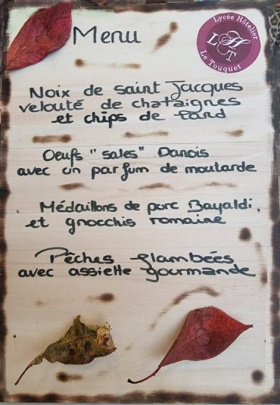 Menu
Lycée Hôtelier
LHT
Le Touquet
Noix de saint Jacques
velouté de chataignes
et chips de lard
Oeufs "sales" Danois
avec un parfum de moutarde
Médaillons de porc Bayaldi
et gnocchis romaine
Pêches flambées
avec assiette gourmande